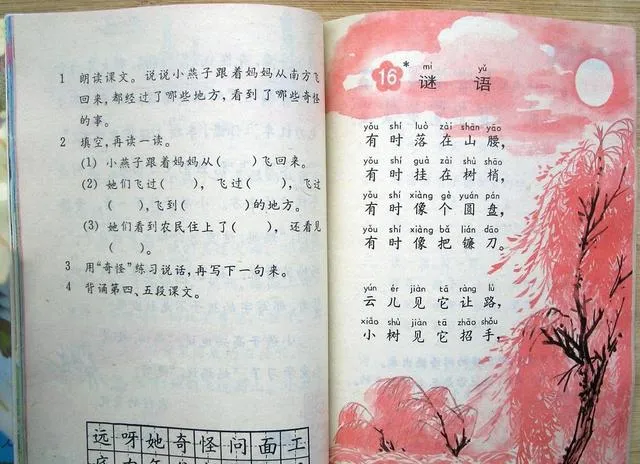 1 朗读课文。说说小燕子跟着妈妈从南方飞
回来,都经过了哪些地方,看到了哪些奇怪
的事。
2 填空,再读一读。
(1) 小燕子跟着妈妈从(  )飞回来。
(2) 她们飞过(  ),飞过(  ),飞过
(  ),飞到(  )的地方。
(3) 她们看到农民住上了(  ),还看见
(  )。
3 用“奇怪”练习说话,再写下一句来。
4 背诵第四、五段课文。
远呀她奇怪问面工
mí yǔ
16* 谜语
yǒu shí luò zài shān yāo
有时落在山腰,
yǒu shí guà zài shù shāo
有时挂在树梢,
yǒu shí xiàng gè yuán pán
有时像个圆盘,
yǒu shí xiàng bǎ lián dāo
有时像把镰刀。
yún ér jiàn tā ràng lù
云儿见它让路,
xiǎo shù jiàn tā zhāo shǒu
小树见它招手,